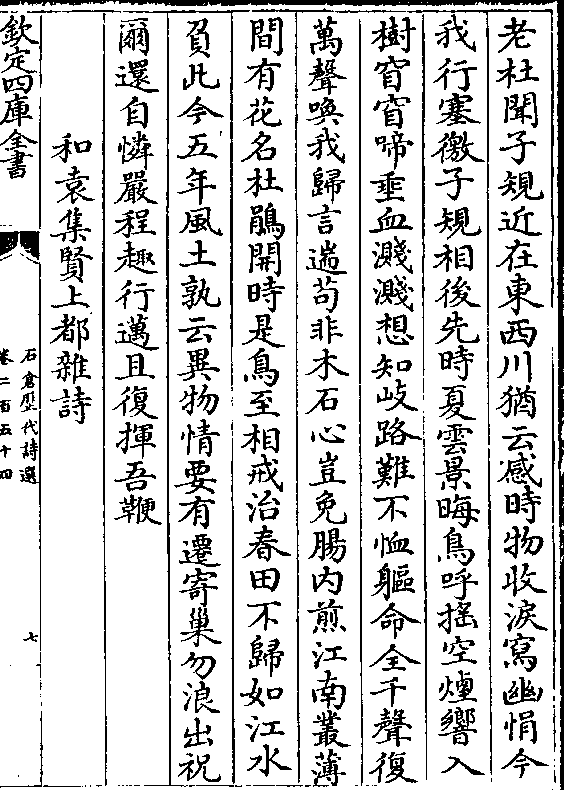 老杜聞子規近在東西川猶云感時物收淚寫幽悁今
我行塞徼子規相後先時夏雲景晦鳥呼摇空煙響入
樹窅窅啼垂血濺濺想知岐路難不恤軀命全千聲復
萬聲喚我歸言遄茍非木石心豈免腸内煎江南叢薄
間有花名杜鵑開時是鳥至相戒治春田不歸如江水
負此今五年風土孰云異物情要有遷寄巢勿浪出祝
爾還自憐嚴程趣行邁且復揮吾鞭
和袁集賢上都雜詩
欽定四庫全書
石倉歷代詩選
卷二百五十四
七